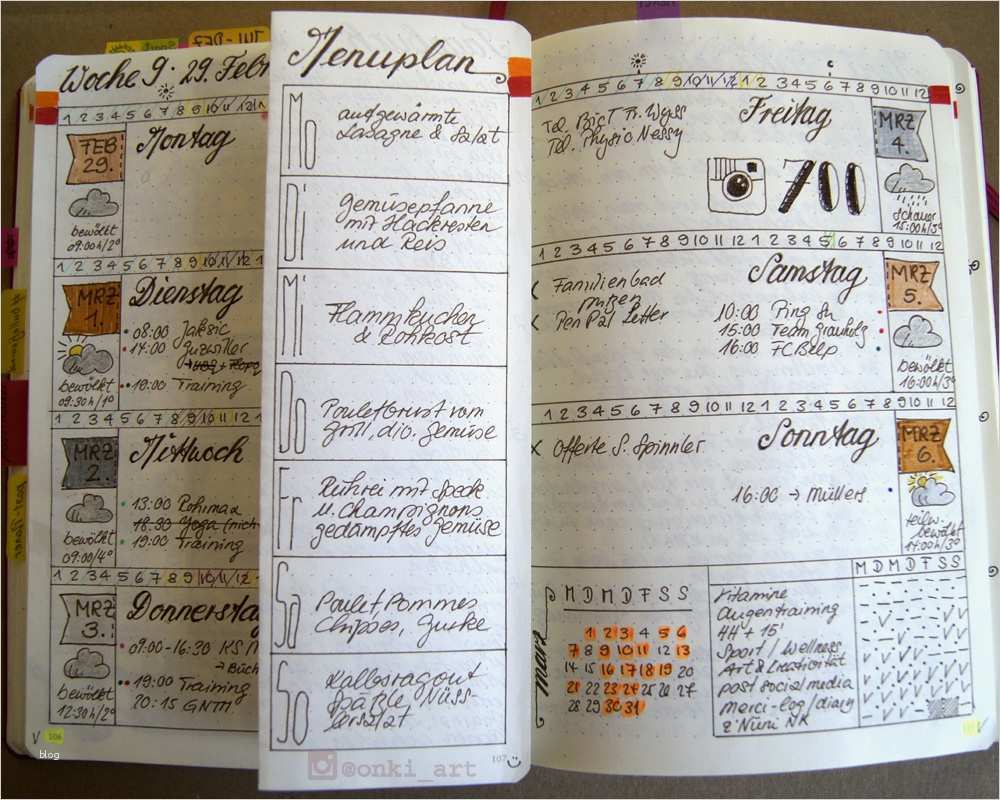 JUL-DEZ
Woche 9 · 29. Febr
1 2 3 4 5 6 7 8 9 10 11 12 1
FEB
29.
Montag
bewölkt
09:00h/2°
1 2 3 4 5 6 7 8 9 10 11 12
MRZ
1.
Dienstag
08:00 Jaksic
14:00
bewölkt
09:30h/1°
18:00 Training
1 2 3 4 5 6 7 8 9 10 11 12 1
MRZ
2.
Mittwoch
13:00 Rohimaa
18:30 Yoga (nich
19:00 Training
bewölkt
09:00/4°
1 2 3 4 5 6 7 8 9 10 11 12 1
MRZ
3.
Donnerstag
09:00-16:30 KS
→ Büch
19:00 Training
20:15 GNTM
bewölkt
12:30h/2°
106
blog
Menuplan
Mo
aufgewärmte
Lasagne & Salat
Di
Gemüsepfanne
mit Hackresten
und Reis
Mi
Flammkuchen
& Rohkost
Do
Pouletbrust vom
Grill, div. Gemüse
Fr
Rührei mit Speck
u. Champignons
gedämpftes Gemüse
Sa
Poulet, Pommes
Chipses, Gurke
So
Kalbsragout
Spätzle, Nüss-
lersalat
107
@onki_art
1 2 3 4 5 6 7 8 9 10 11 12 1 2 3 4 5 6 7 8 9 10 11 12
Tel. Büro Th. Wyss
Tel. Physio Nessy
Freitag
700
MRZ
4.
Schauer
15:00h/5°
1 2 3 4 5 6 7 8 9 10 11 12 1 2 3 4 5 6 7 8 9 10 11 12
Familienbad
Pen Pal Letter
Samstag
10:00 Ring
15:00 Team Grauholz
16:00 FC Belp
MRZ
5.
bewölkt
16:00h/3°
1 2 3 4 5 6 7 8 9 10 11 12 1 2 3 4 5 6 7 8 9 10 11 12
Offerte S. Spinnler
Sonntag
16:00 → Müllers
MRZ
6.
teilw.
bewölkt
17:00h/3°
März
M D M D F S S
1 2 3 4 5 6
7 8 9 10 11 12 13
14 15 16 17 18 19 20
21 22 23 24 25 26 27
28 29 30 31
M D M D F S S
Vitamine
Augentraining
HH + 15'
Sport / Wellness
Art & Creativität
post social media
merci-log / diary
z'Nüni NK